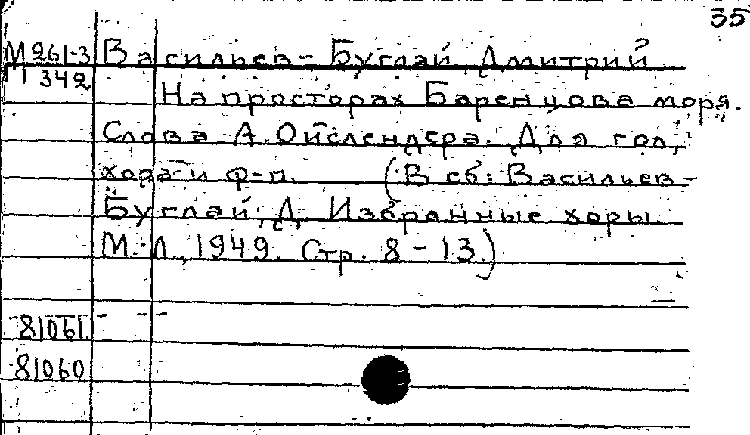 35
М 261-3 Васильев-Буглай, Дмитрий
П 342
На просторах Баренцова моря.
Слова А. Ойслендера. Для гол,
хора и ф-п. (В сб: Васильев-
Буглай, Д. Избранные хоры.
М.-Л., 1949. Стр. 8-13.)
81061
81060